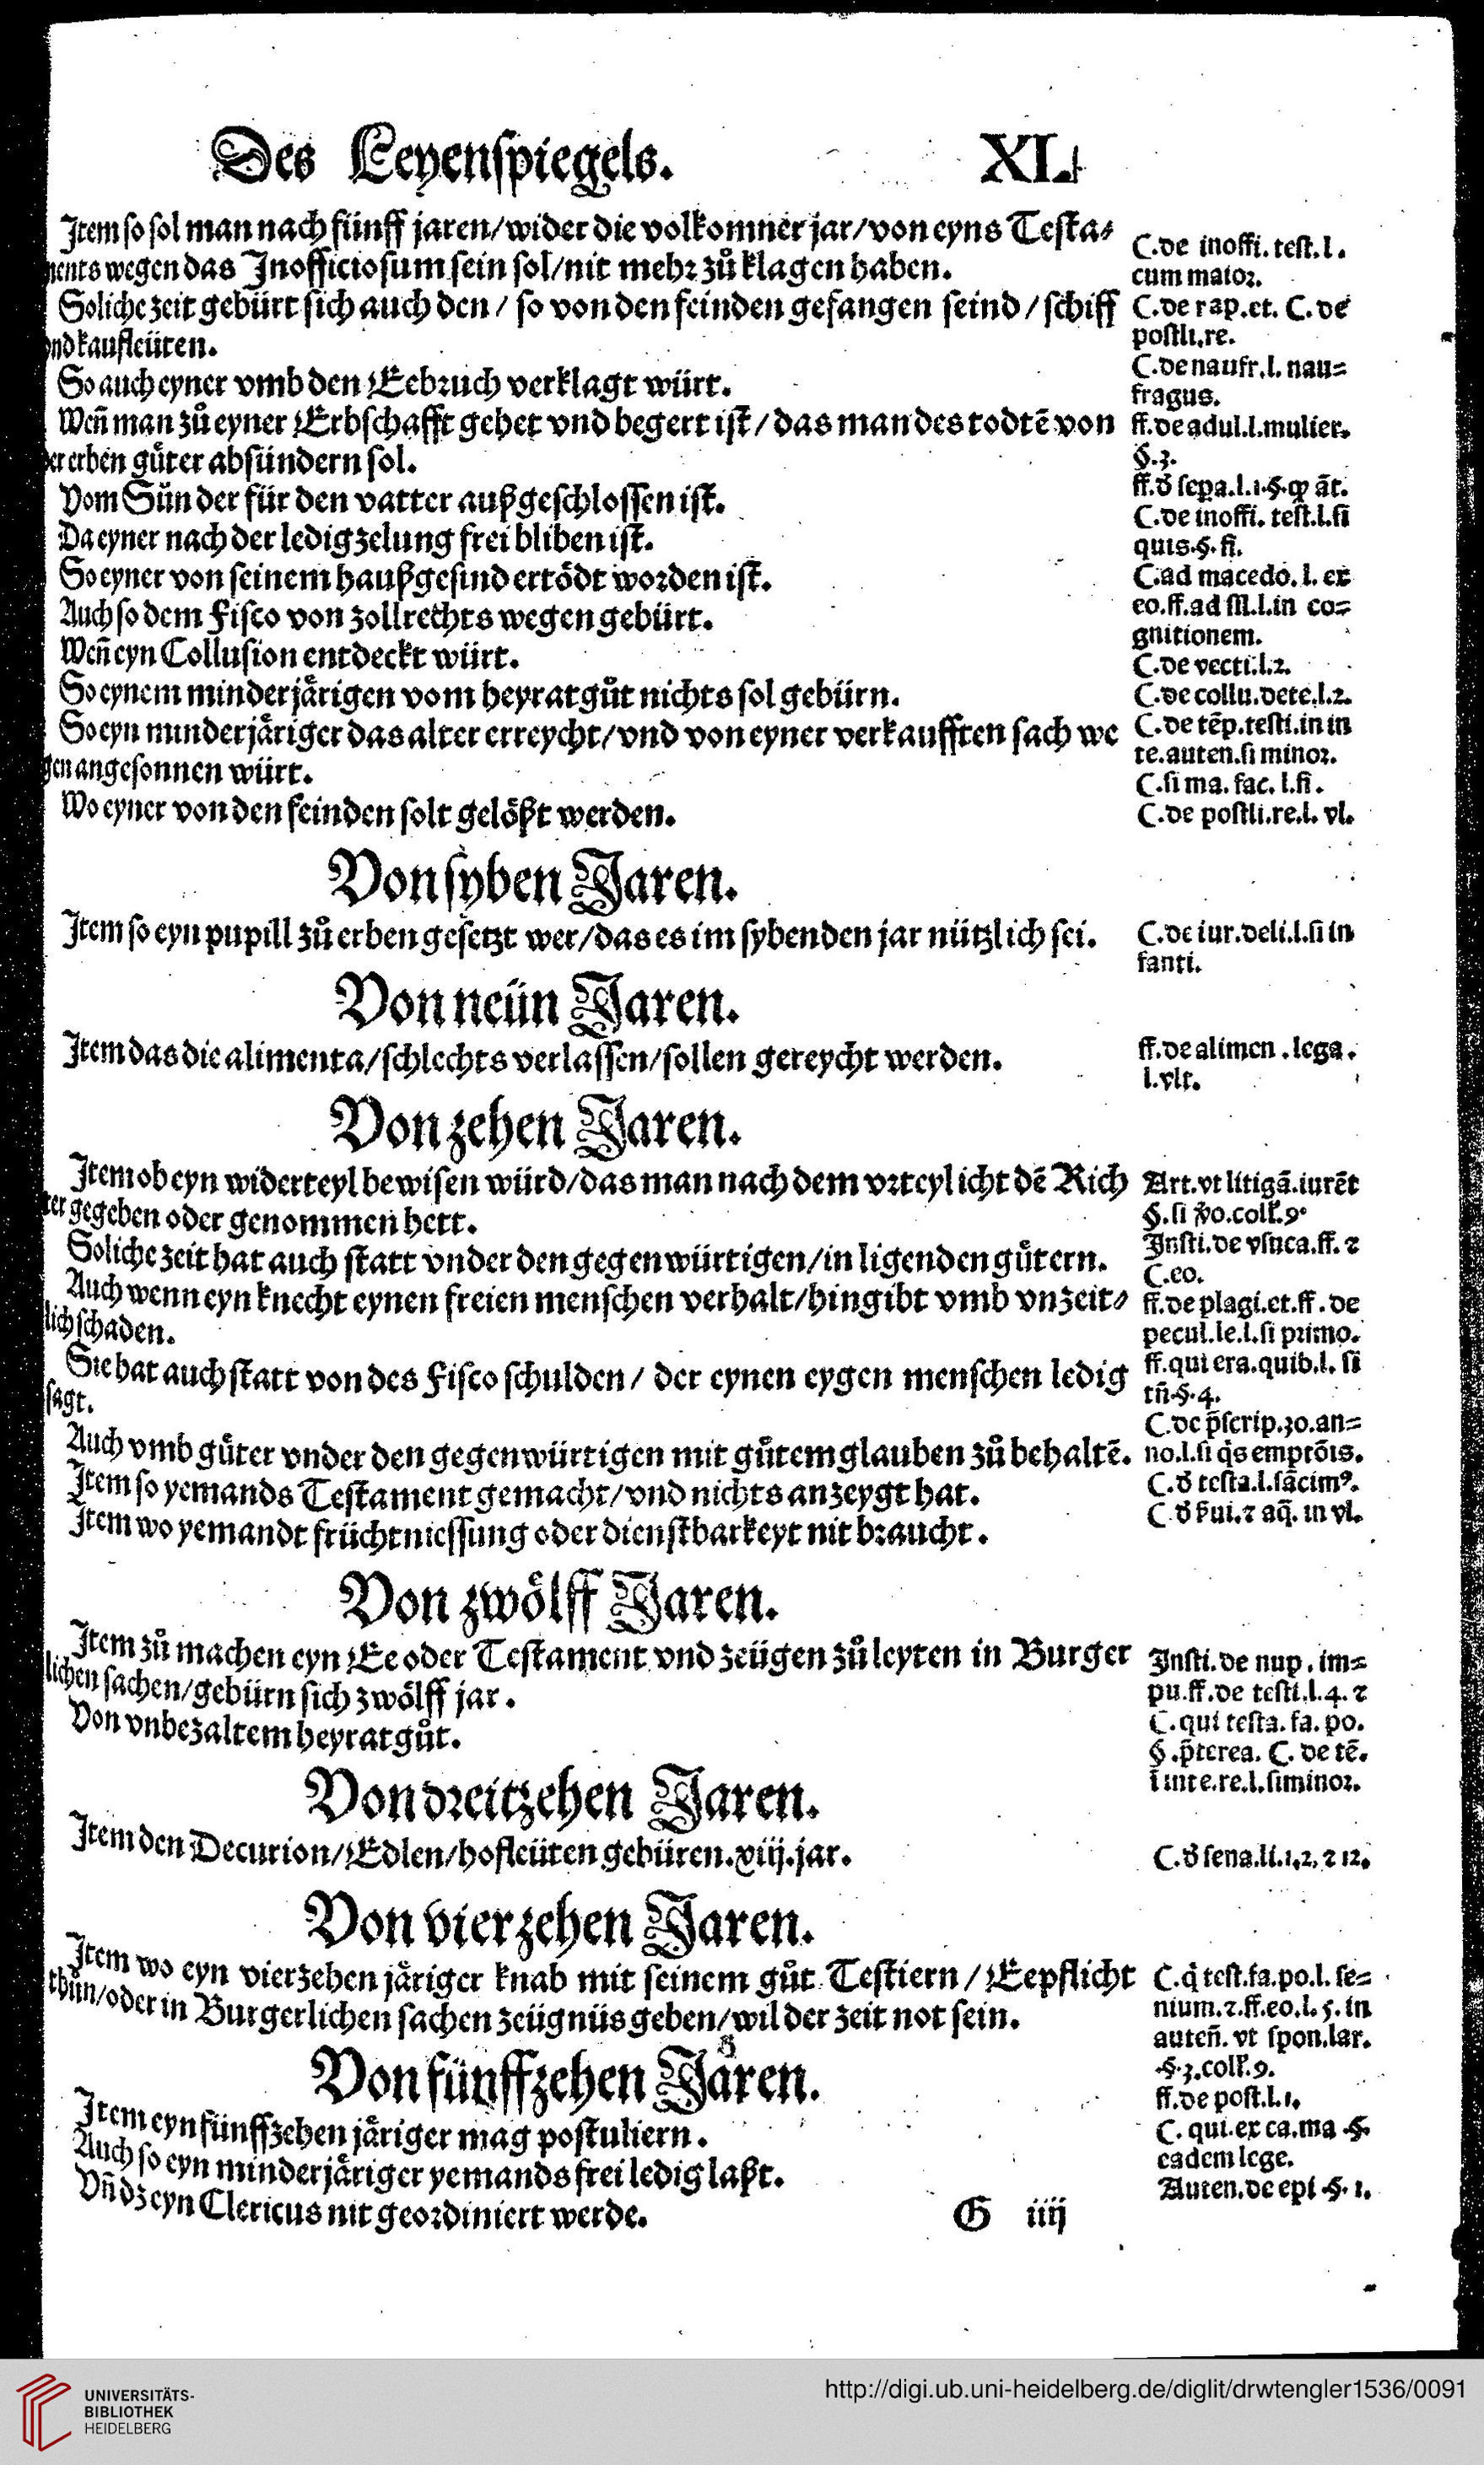 Des Leyenspiegels. XL
Item so sol man nach fünff jaren/wider die volkomner jar/von eyns Testa⸗
ments wegen das Inofficiosum sein sol/nit mehr zů klagen haben.
Soliche zeit gebürt sich auch den/ so von den feinden gefangen seind/ schiff
vnd kaufleüten.
So auch eyner vmb den Eebruch verklagt würt.
Weñ man zů eyner Erbschafft gehet vnd begert ist/das man des todtẽ von
der erben gůter absündern sol.
Vom Sůn der für den vatter außgeschlossen ist.
Da eyner nach der ledigzelung frei bliben ist.
So eyner von seinem haußgesind ertödt worden ist.
Auch so dem Fisco von zollrechts wegen gebürt.
Weñ eyn Collusion entdeckt würt.
So eynem minderjärigen vom heyratgůt nichts sol gebürn.
So eyn minderjäriger das alter erreycht/vnd von eyner verkaufften sach we
gen angesonnen würt.
Wo eyner von den feinden solt gelößt werden.
C.de inoffi. test.l.
cum maior.
C.de rap.et. C.de
postli.re.
C.de naufr.l. nau=
fragus.
ff.de adul.l.mulier.
§.3.
ff.d̕ sepa.l.1.§.qp ãt.
C.de inoffi. test.l.si
quis.§.fi.
C.ad macedo.l. ex
eo.ff.ad sil.l.in co=
gnitionem.
C.de vecti.l.2.
C.de collu.dete.l.2.
C.de tẽp.testi.in in
te.auten.si minor.
C.si ma. fac. l.fi.
C.de postli.re.l. vl.
Von syben Jaren.
Item so eyn pupill zů erben gesetzt wer/das es im sybenden jar nützlich sei.
C.de iur.deli.l.si in
fanti.
Von neün Jaren.
Item das die alimenta/schlechts verlassen/sollen gereycht werden.
ff.de alimen.lega.
l.vlt.
Von zehen Jaren.
Item ob eyn widerteyl bewisen würd/das man nach dem vrteyl icht dẽ Rich
ter gegeben oder genommen hett.
Soliche zeit hat auch statt vnder den gegenwürtigen/in ligenden gůtern.
Auch wenn eyn knecht eynen freien menschen verhalt/hingibt vmb vnzeit⸗
lich schaden.
Sie hat auch statt von des Fisco schulden/ der eynen eygen menschen ledig
sagt.
Auch vmb gůter vnder den gegenwürtigen mit gůtem glauben zů behaltẽ.
Item so yemands Testament gemacht/vnd nichts anzeygt hat.
Item wo yemandt früchtniessung oder dienstbarkeyt nit braucht.
Art.vt litigã.iurẽt
§.si ṽo.coll̃.9.
Insti.de vsuca.ff. ⁊
C.eo.
ff.de plagi.et.ff.de
pecul.le.l.si primo.
ff.qui era.quib.l. si
tñ.§.4.
C.de p̃scrip.30.an=
no.l.si q̃s emptõis.
C.d̕ testa.l.sãcimꝰ.
C.d̕ ẛui.⁊ aq̃. in vl.
Von zwölff Jaren.
Item zů machen eyn Ee oder Testament vnd zeügen zů leyten in Burger
lichen sachen/gebürn sich zwölff jar.
Von vnbezaltem heyratgůt.
Insti.de nup.im=
pu.ff.de testi.l.4.⁊
C.qui testa.fa.po.
§.p̃terea. C. de tẽ.
ĩ inte.re.l.siminor.
Von dreitzehen Jaren.
Item den Decurion/Edlen/hofleüten gebüren.xiij.jar.
C.d̕ sena.li.1,2,⁊ 12.
Von vierzehen Jaren.
Item wo eyn vierzehen järiger knab mit seinem gůt Testiern/Eepflicht
thůn/oder in Burgerlichen sachen zeügnüs geben/wil der zeit not sein.
C.q̃ test.fa.po.l.se=
nium.⁊.ff.eo.l.5.in
auteñ.vt spon.lar.
§.3.coll̃.9.
Von fünffzehen Jaren.
Item eyn fünffzehen järiger mag postuliern.
Auch so eyn minderjäriger yemands frei ledig laßt.
Vñ dz eyn Clericus nit geordiniert werde.
ff.de post.l.1.
C. qui.ex ca.ma.§.
eadem lege.
Auten.de epi.§.1.
G iiij
UNIVERSITÄTS-
BIBLIOTHEK
HEIDELBERG
http://digi.ub.uni-heidelberg.de/diglit/drwtengler1536/0091